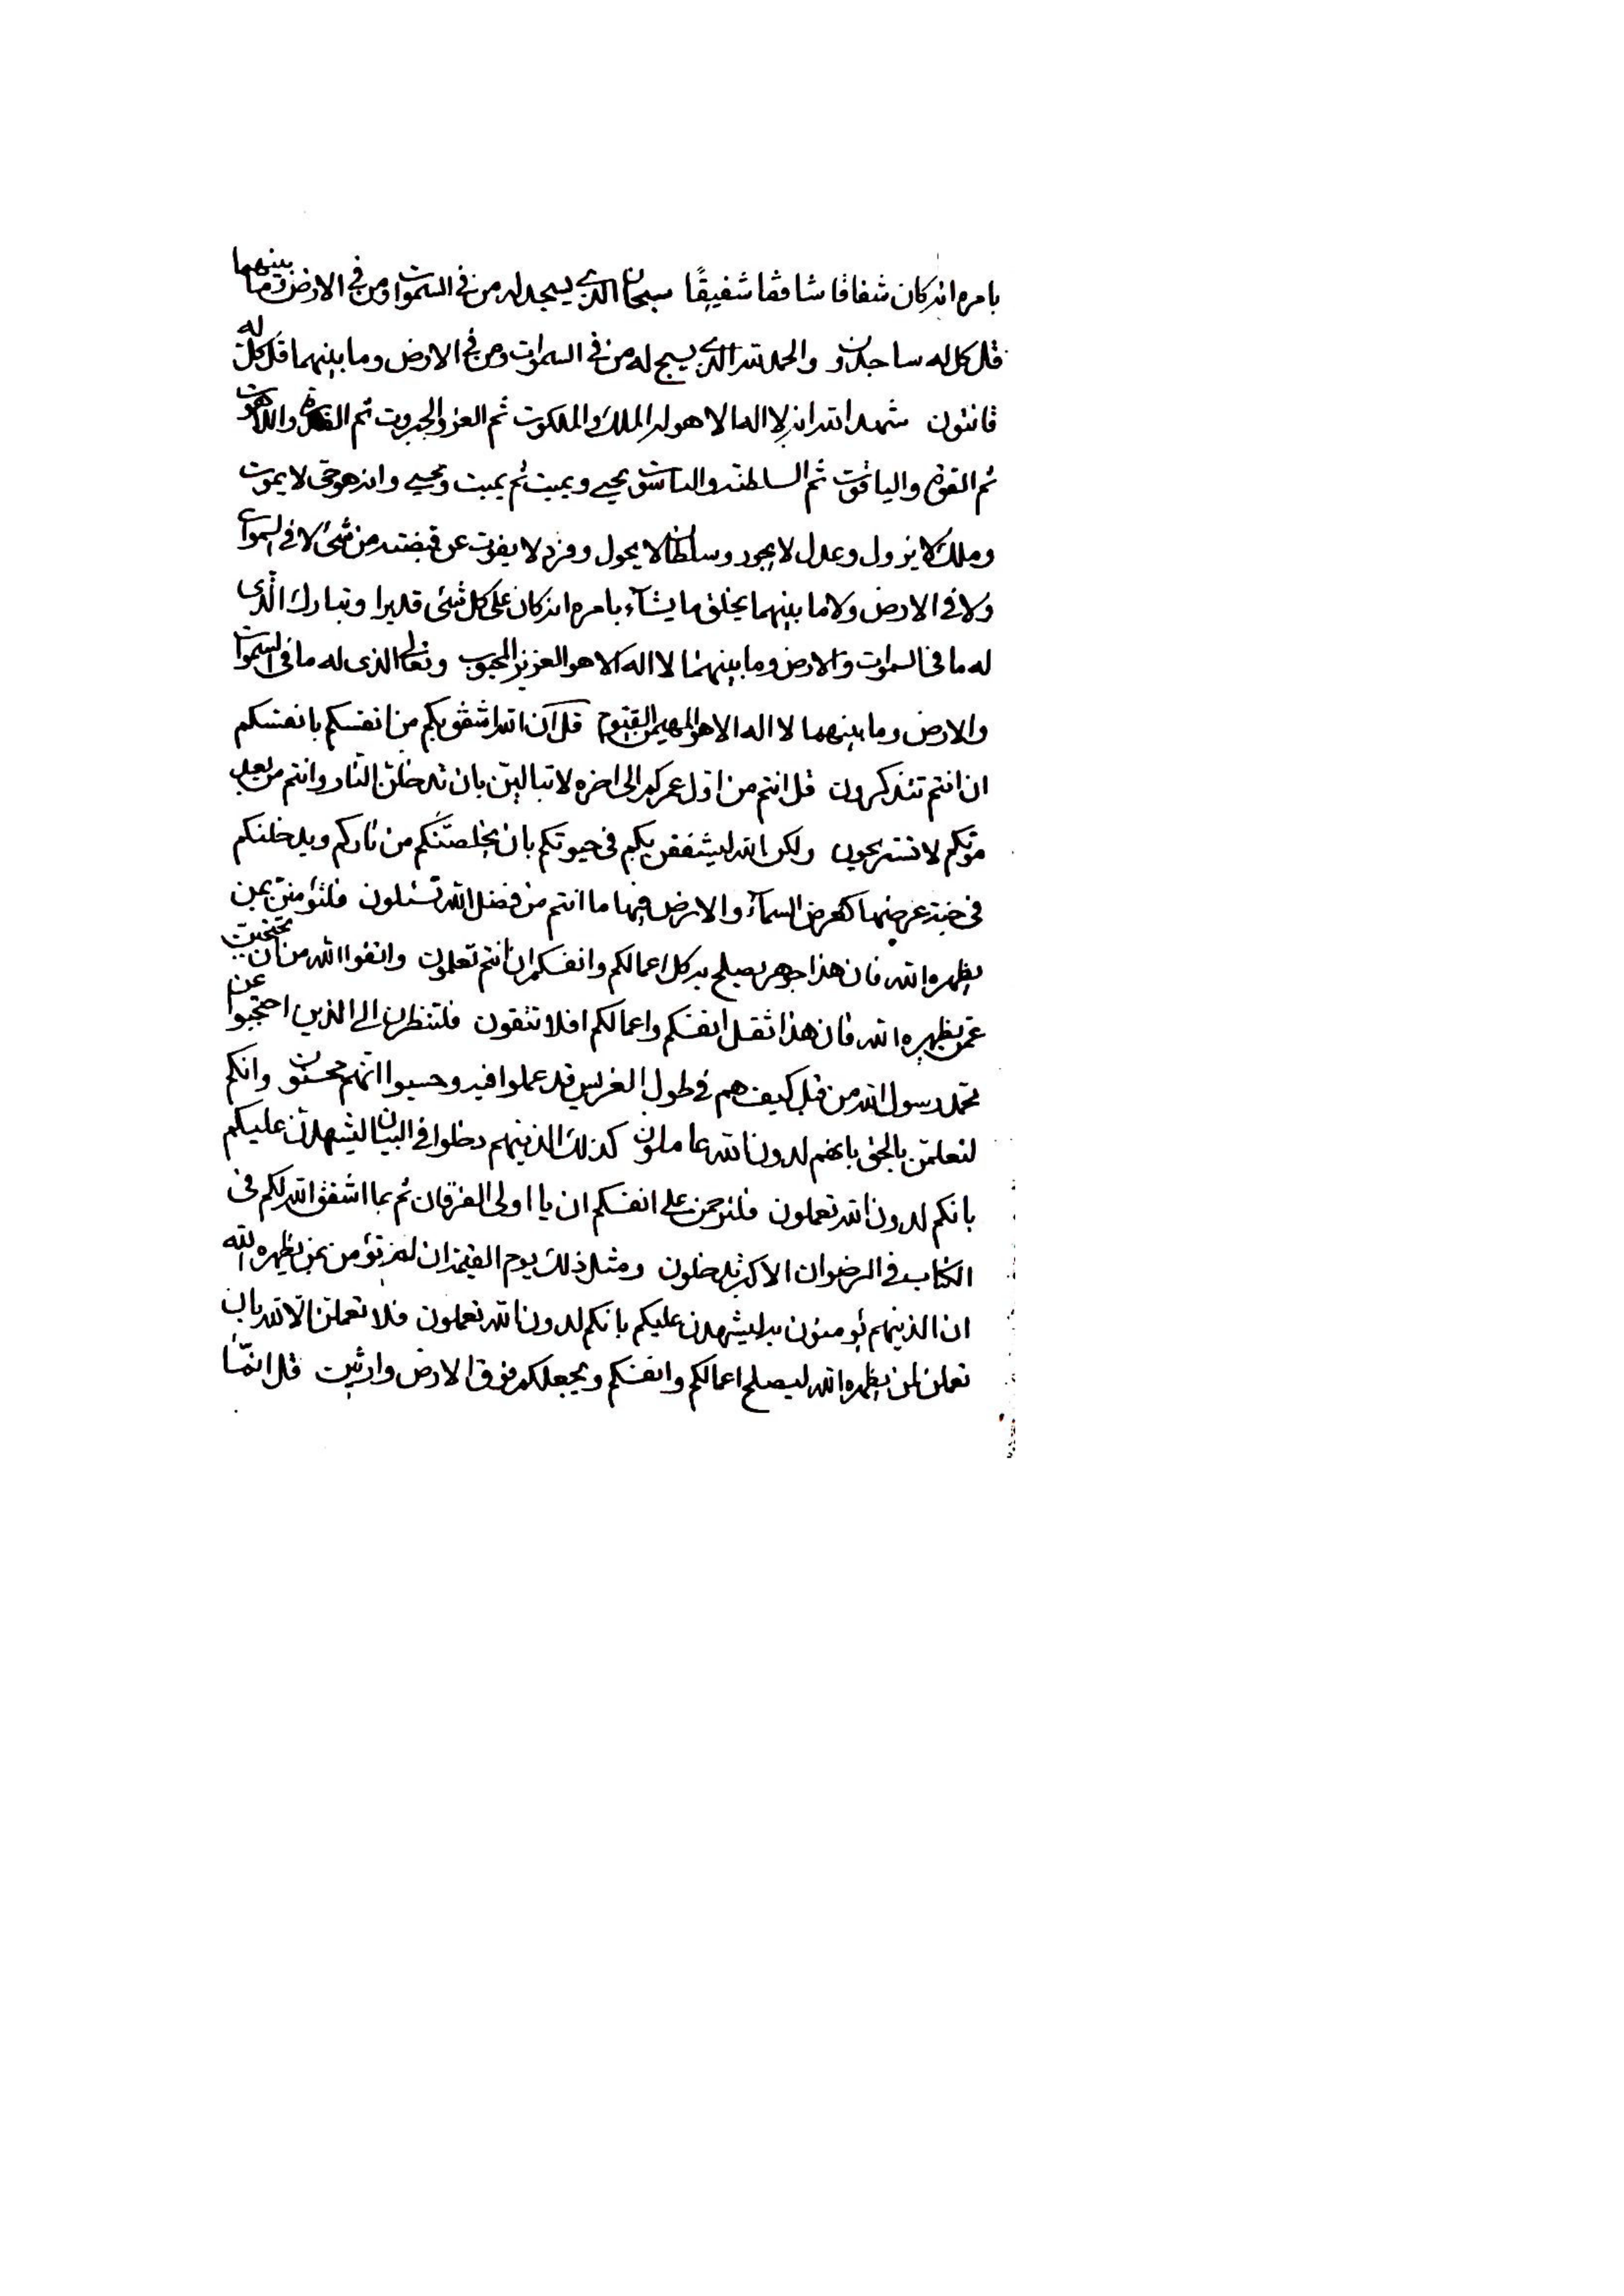 بامره انه كان شفاقا شافقا شفيقًا سبحان الذي يسجد له من في السموات ومن في الارض وما بينهما
قل كل له ساجدون والحمد لله الذي يسبح له من في السموات ومن في الارض وما بينهما قل كل له
قانتون شهد الله انه لا اله الا هو له الملك والملكوت ثم العز والجبروت ثم القدرة واللاهوت
ثم القوة والياقوت ثم السلطنة والناسوت يحيي ويميت ثم يميت ويحيي وانه هو حي لا يموت
وملك لا يزول وعدل لا يجور وسلطان لا يحول وفرد لا يفوت عن قبضته من شئ لا في السموات
ولا في الارض ولا ما بينهما يخلق ما يشآء بامره انه كان على كل شئ قديرا وتبارك الذي
له ما في السموات والارض وما بينهما لا اله الا هو العزيز المحبوب وتعالى الذى له ما فى السموات
والارض وما بينهما لا اله الا هو المهيمن القيوم قل ان الله اشفق بكم من انفسكم بانفسكم
ان انتم تتذكرون قل انتم من اول عمركم الى اخره لا تبالين بان تدخلن النار وانتم من بعد
موتكم لا تستريحون ولكن الله ليشفقن بكم فى حيوتكم بان يخلصنكم من ناركم ويدخلنكم
فى جنة عرضها كعرض السمآء والارض فيها ما انتم من فضل الله تسئلون فلتؤمنن بمن
يظهره الله فان هذا جوهر يصلح به كل اعمالكم وانفسكم ان انتم تعلمون واتقوا الله من ان تحتجبن
عمن يظهره الله فان هذا ثقل انفسكم واعمالكم افلا تتقون فلتنظرن الى الذين احتجبوا عن
محمد رسول الله من قبل كيف هم في طول الفريس قد عملوا فيه وحسبوا انهم محسنون وانكم
لتعلمن بالحق بانهم لدون الله عاملون كذلك الذينهم دخلوا في البيان ليشهدن عليكم
بانكم لدون الله تعملون فلترحمن على انفسكم ان يا اولى الفرقان ثم بما اشفق الله لكم فى
الكتاب في الرضوان الاكبر تدخلون ومثل ذلك يوم القيمة ان لم تؤمن بمن يظهره الله
ان الذينهم يؤمنون به ليشهدن عليكم بانكم لدون الله تعملون فلا تعملن الا لله بان
تعملن لمن يظهره الله ليصلح اعمالكم وانفسكم ويجعلكم فوق الارض وارثين قل انما